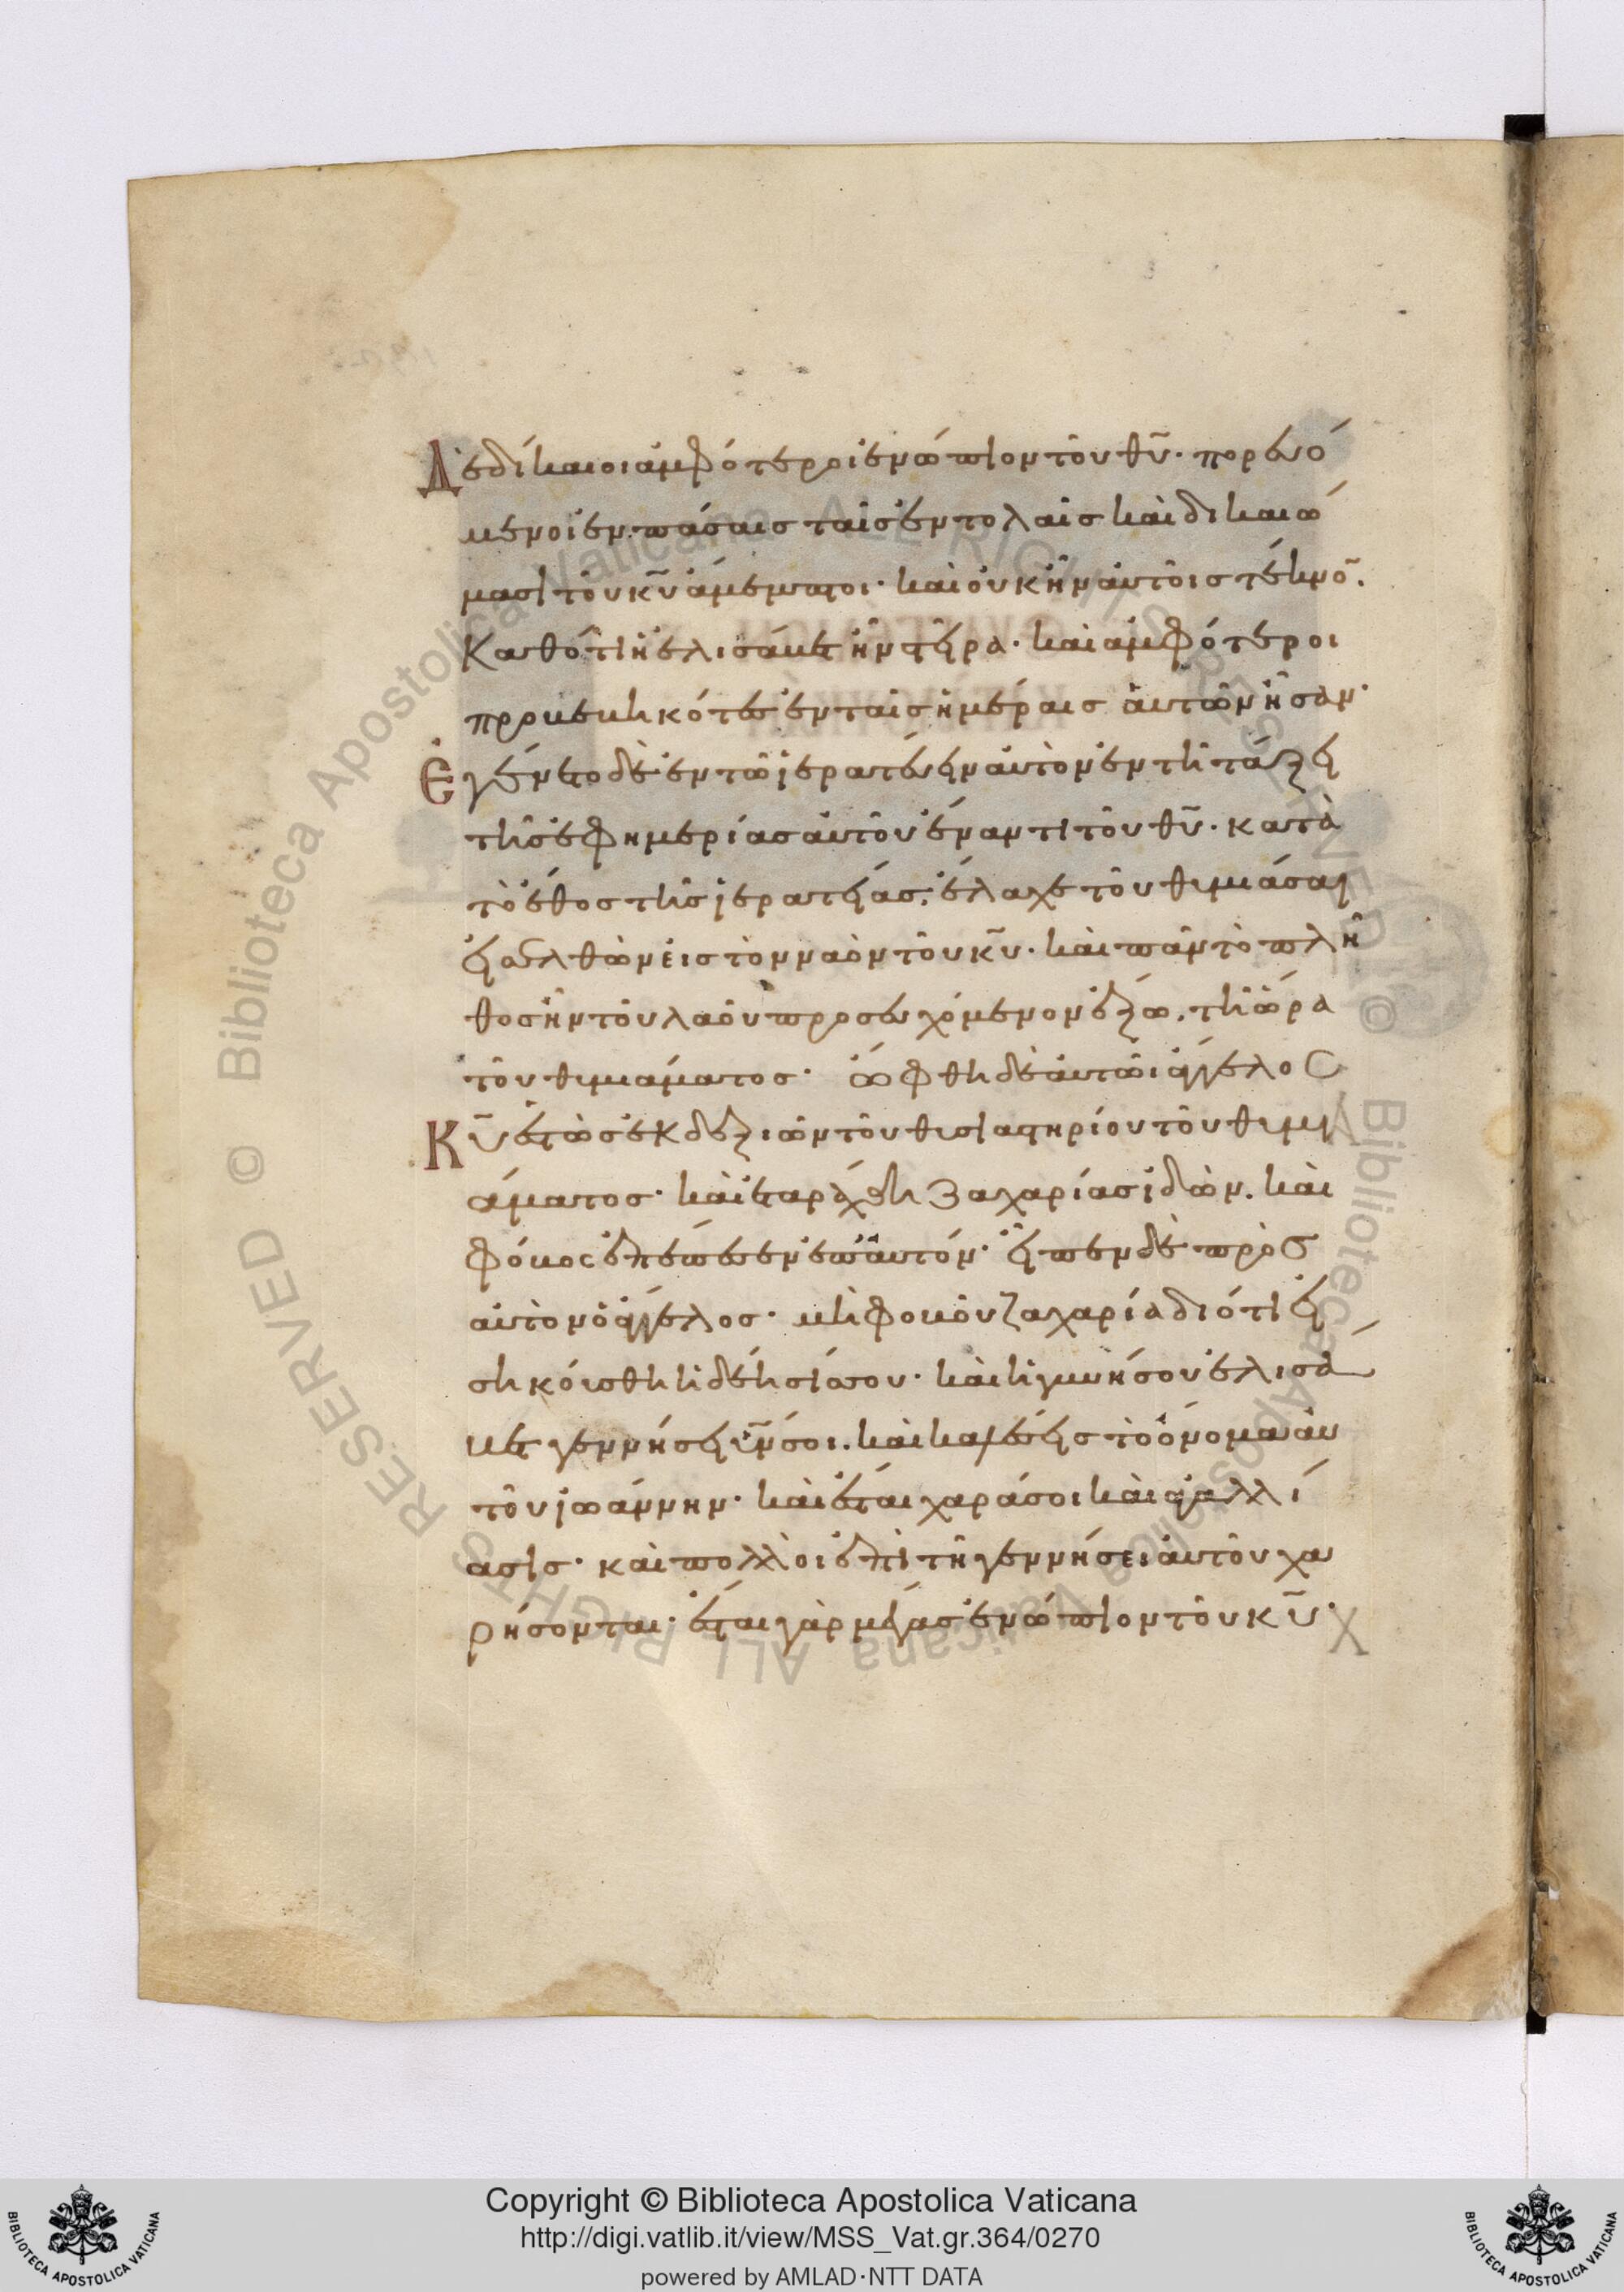 Δὲ δίκαιοι ἀμφότεροι ἐνώπιον τοῦ θ̅υ̅· πορευό
μενοι ἐν πάσαις ταῖς ἐντολαῖς καὶ δικαιώ
μασι τοῦ κ̅υ̅ ἄμεμπτοι· καὶ οὐκ ἦν αὐτοῖς τέκνο̅.
Καθότι ἡ ἐλισάβετ ἦν στεῖρα· καὶ ἀμφότεροι
προβεβηκότες ἐν ταῖς ἡμέραις αὐτῶν ἦσαν·
Ἐγένετο δὲ ἐν τῶ ἱερατεύειν αὐτὸν ἐν τῆ τάξει
τῆς ἐφημερίας αὐτοῦ ἔναντι τοῦ θ̅υ̅· κατὰ
τὸ ἔθος τῆς ἱερατείας· ἔλαχε τοῦ θυμιάσαι
εἰσελθὼν εἰς τὸν ναὸν τοῦ κ̅υ̅· καὶ πᾶν τὸ πλῆ
θος ἦν τοῦ λαοῦ προσευχόμενον ἔξω. τῆ ὥρα
τοῦ θυμιάματος· ὤφθη δὲ αὐτῶ ἄγγελος
Κ̅υ̅ ἑστὼς ἐκ δεξιῶν τοῦ θυσιαστηρίου τοῦ θυμι
άματος· καὶ ἐταράχθη Ζαχαρίας ἰδών. καὶ
φόβος ἐπέπεσεν ἐπ' αὐτόν· εἶπεν δὲ πρὸς
αὐτὸν ὁ ἄγγελος· μὴ φοβοῦ ζαχαρία διότι εἰ
σηκούσθη ἡ δέησίς σου· καὶ ἡ γυνή σου ἐλισά
βετ γεννήσει υ̅ν̅ σοι. καὶ καλέσεις τὸ ὄνομα αὐ
τοῦ ἰωάννην· καὶ ἔσται χαρά σοι καὶ ἀγαλλί
ασις· καὶ πολλοὶ ἐπὶ τῆ γεννήσει αὐτοῦ χα
ρήσονται· ἔσται γὰρ μέγας ἐνώπιον τοῦ κ̅υ̅·
Copyright © Biblioteca Apostolica Vaticana
http://digi.vatlib.it/view/MSS_Vat.gr.364/0270
powered by AMLAD·NTT DATA
BIBLIOTECA APOSTOLICA VATICANA
BIBLIOTECA APOSTOLICA VATICANA
© Biblioteca Apostolica Vaticana ALL RIGHTS RESERVED © Biblioteca Apostolica Vaticana ALL RIGHTS RESERVED